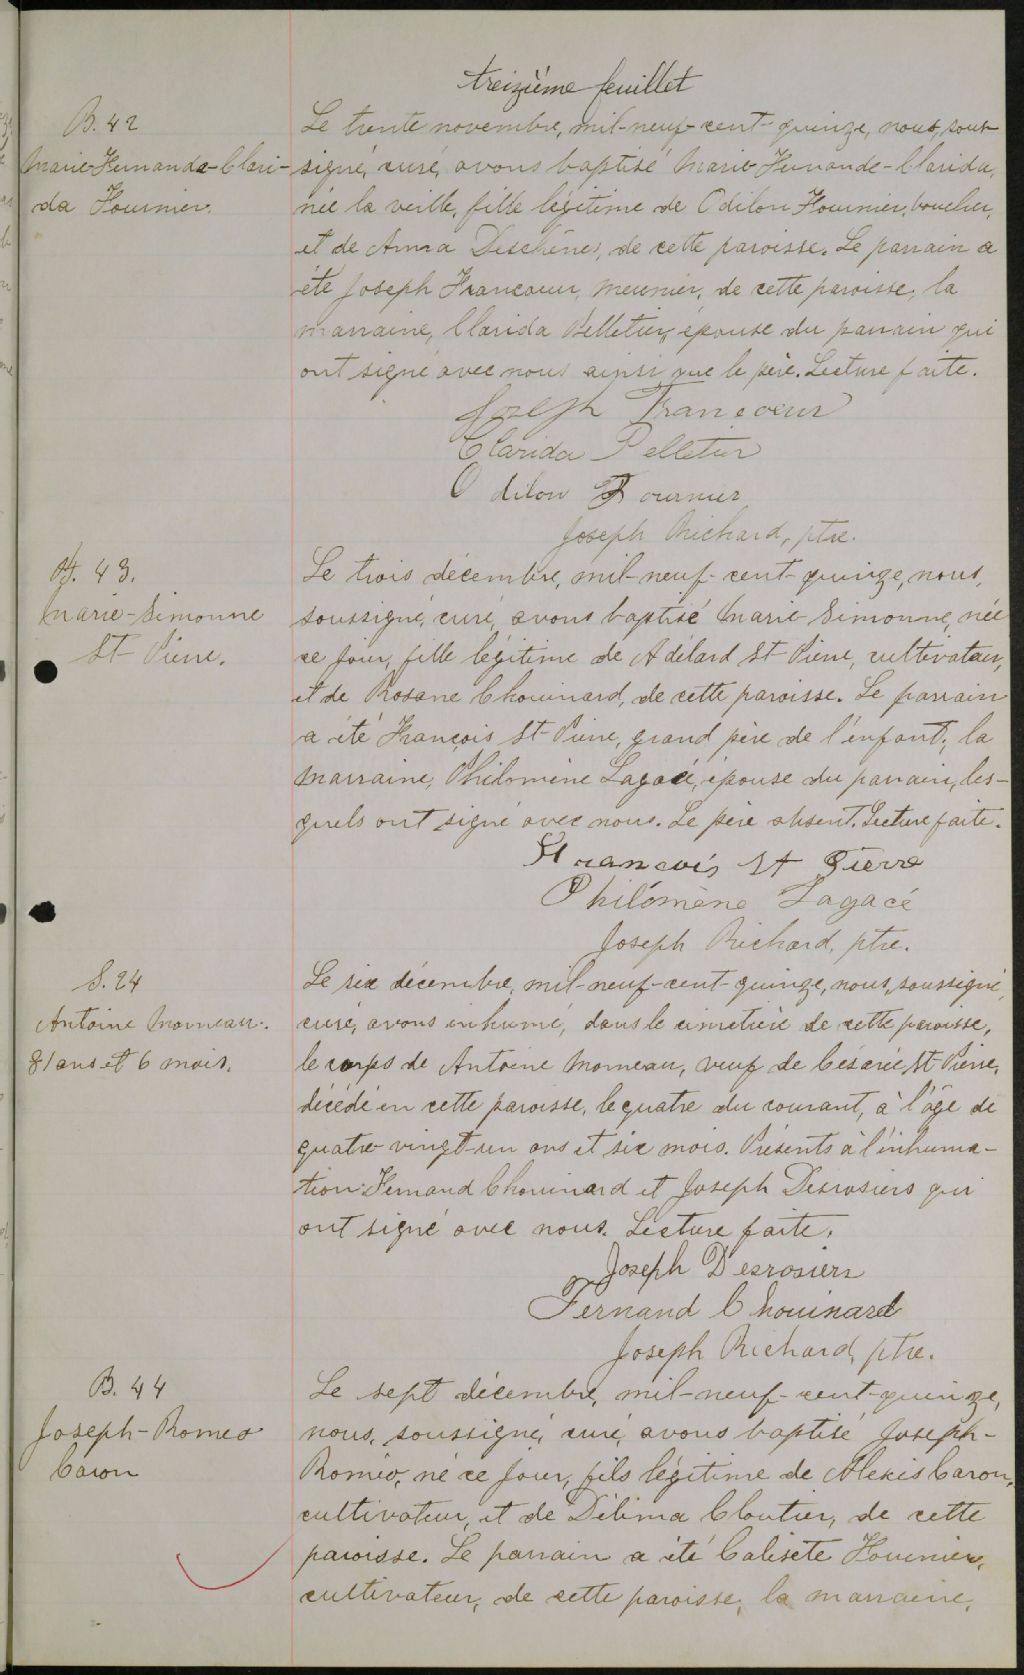 treizième feuillet
B. 42
Marie-Fernande-Clari-
da Fournier.
Le trente novembre, mil-neuf-cent-quinze, nous, sous-
signé, curé, avons baptisé Marie-Fernande-Clarida,
née la veille, fille légitime de Odilon Fournier, boucher,
et de Anna Deschênes, de cette paroisse. Le parrain a
été Joseph Francoeur, meunier, de cette paroisse, la
marraine, Clarida Pelletier, épouse du parrain qui
ont signé avec nous ainsi que le père. Lecture faite.
Joseph Francoeur
Clarida Pelletier
Odilon Fournier
Joseph Richard, ptre.
B. 43.
Marie-Simonne
St-Pierre.
Le trois décembre, mil-neuf-cent-quinze, nous,
soussigné, curé, avons baptisé Marie-Simonne, née
ce jour, fille légitime de Adélard St-Pierre, cultivateur,
et de Rosane Chouinard, de cette paroisse. Le parrain
a été François St-Pierre, grand père de l'enfant; la
marraine, Philomène Lagacé, épouse du parrain, les-
quels ont signé avec nous. Le père absent. Lecture faite.
Francois St Pierre
Philomène Lagacé
Joseph Richard, ptre.
S. 24
Antoine Morneau.
81 ans et 6 mois.
Le six décembre, mil-neuf-cent-quinze, nous, soussigné,
curé, avons inhumé, dans le cimetière de cette paroisse,
le corps de Antoine Morneau, veuf de Césarée St-Pierre,
décédé en cette paroisse, le quatre du courant, à l'âge de
quatre-vingt-un ans et six mois. Présents à l'inhuma-
tion: Fernand Chouinard et Joseph Desrosiers qui
ont signé avec nous. Lecture faite.
Joseph Desrosiers
Fernand Chouinard
Joseph Richard, ptre.
B. 44
Joseph-Romeo
Caron
Le sept décembre, mil-neuf-cent-quinze,
nous, soussigné, curé, avons baptisé Joseph-
Roméo, né ce jour, fils légitime de Alexis Caron,
cultivateur, et de Délima Cloutier, de cette
paroisse. Le parrain a été Calixte Fournier,
cultivateur, de cette paroisse, la marraine,